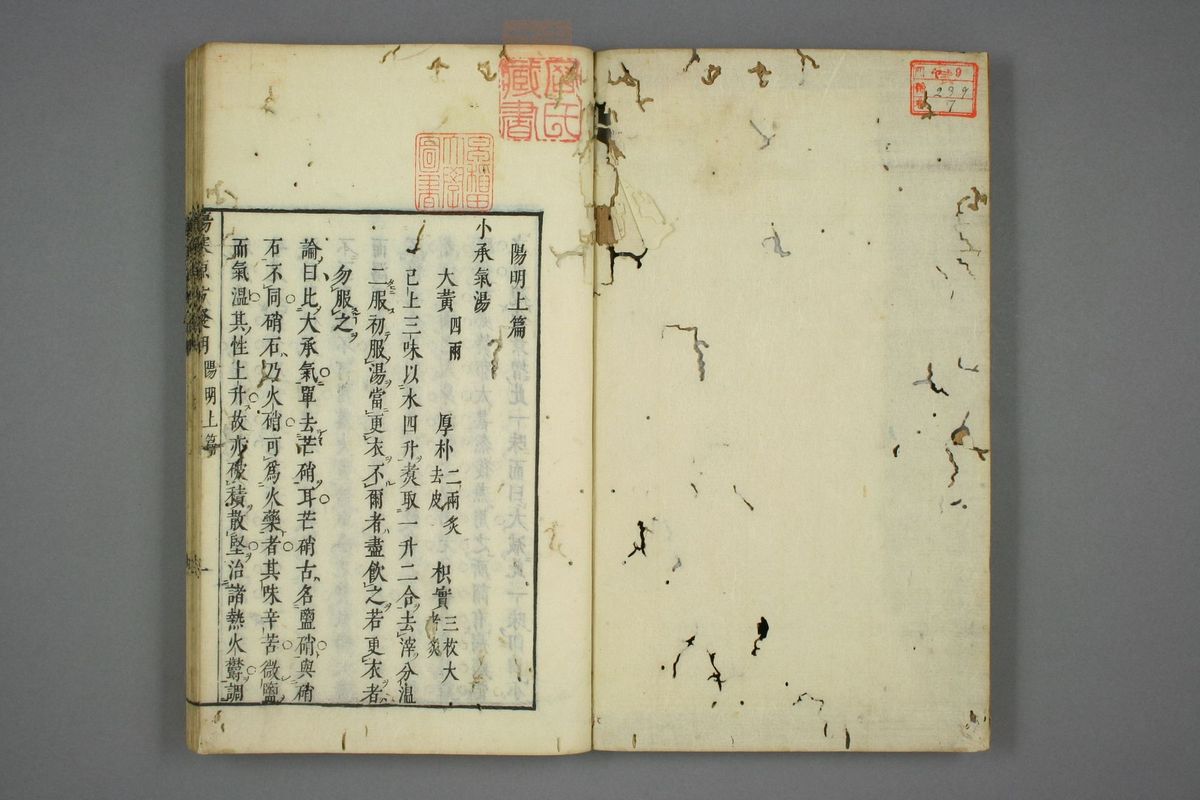 陽明上篇
小承氣湯
大黃四兩 厚朴二兩炙去皮 枳實三枚大者炙
已上三味以水四升煑取一升二合去滓分温
二服初服湯當更衣不爾者盡飮之若更衣者
勿服之
論曰比大承氣單去芒硝耳芒硝古名鹽硝與硝
石不同硝石乃火硝可爲火藥者其味辛苦微鹽
而氣温其性上升故亦破積散堅治諸熱火鬱調
陽明上篇
藏書
圖書
239
7